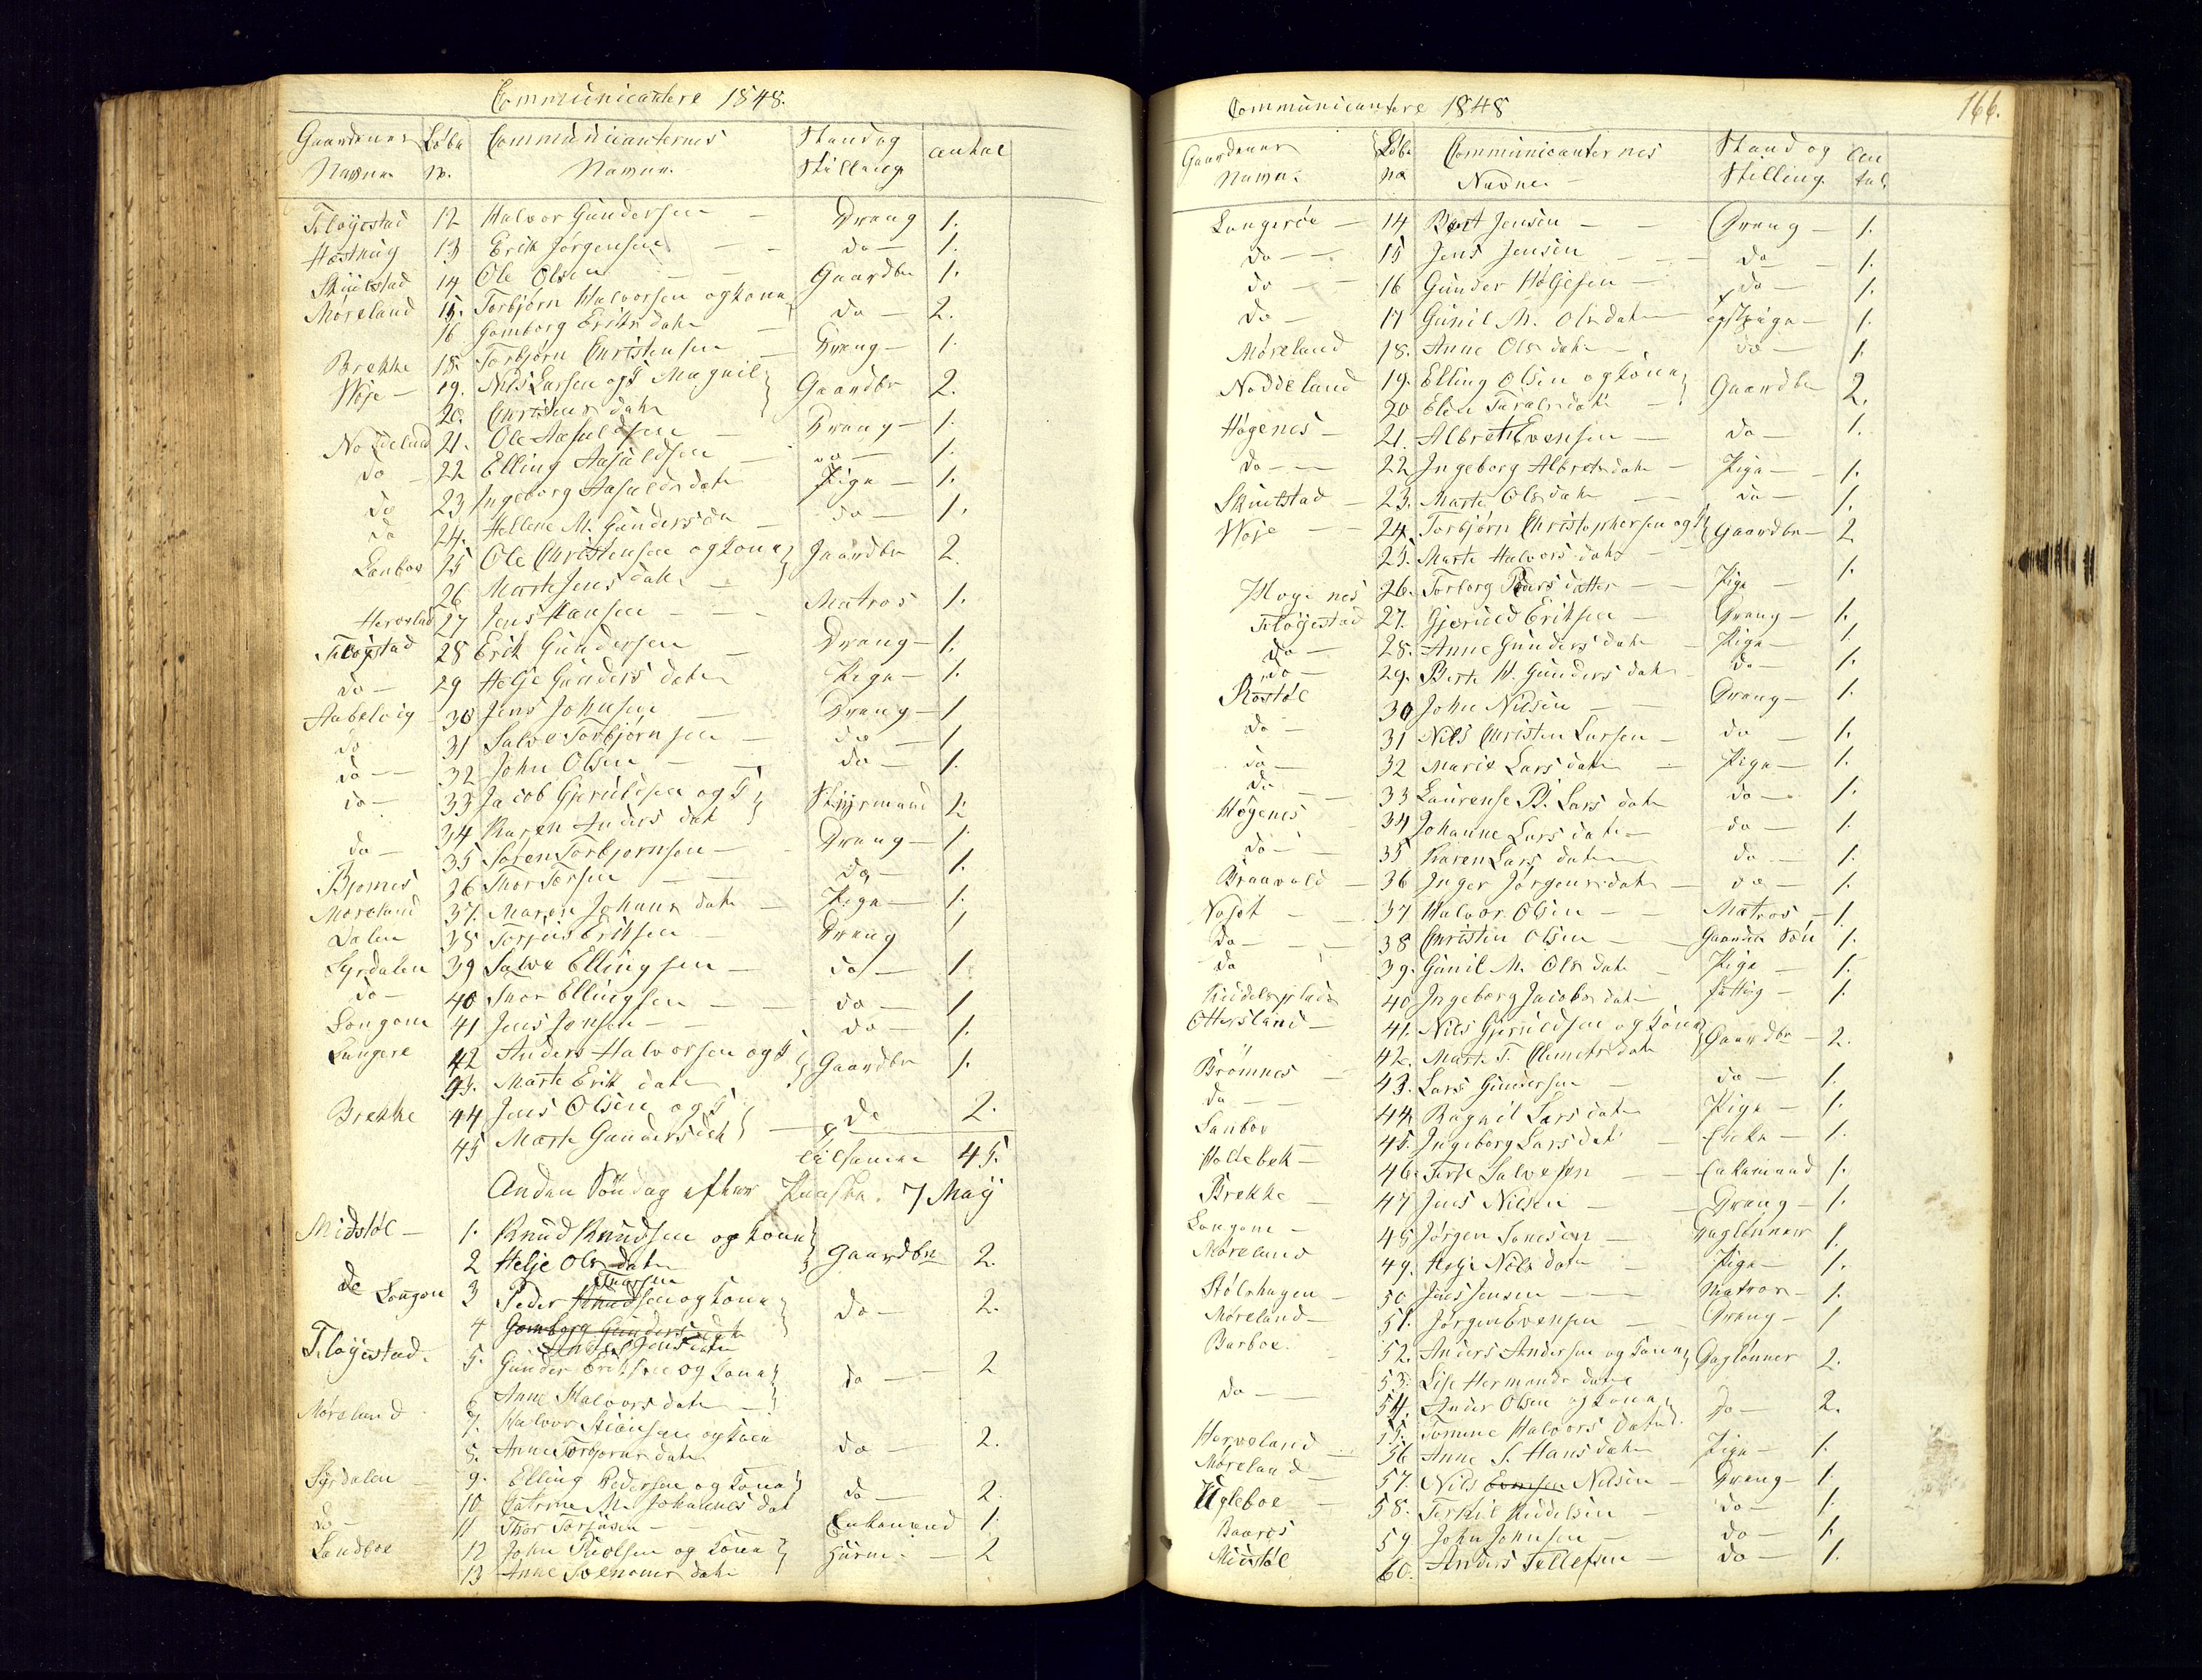 Communicantere 1848.
Gaardenes Løbe Communicanternes Stand og Antal
Navne. N. Navne. Stilling
Fløgestad 12 Halvor Gundersen Dreng 1.
Hæstnug 13 Erik Jørgensen do 1.
Skudstad 14 Ole Olsen Gaardbr 1.
Møreland 15. Torbjørn Halvorsen og Kone do 2.
16 Gomborg Eriksdatr
Brekke 18. Torbjørn Christensen Dreng 1.
Woje 19. Nils Larsen og K Magnil Gaardbr 2.
20. Christensdatr
Noddeland 21. Ole Aasuldsen Dreng 1.
do 22 Elling Aasuldsen do 1.
do 23 Ingeborg Aasuldsdatr Pige 1.
do 24. Hellene M. Gundersda do 1.
Lanboe 25 Ole Christensen og Kone Gaardbr 2.
26 Marte Jensdatr
27 Jens Hansen Matros 1.
Fløgstad 28 Erik Gundersen Dreng 1.
do 29 Helje Gundersdatr Pige 1.
Aabelvig 30 Jens Johnsen Dreng 1
do 31 Salve Torbjørnsen do 1
do 32 John Olsen do 1.
do 33 Jacob Gjeruldsen og K Styrmand 2
34 Karen Andersdat
do 35 Søren Torbjørnsen Dreng 1.
Bjornes 36 Thor Torsen do 1.
Møreland 37. Maren Johansdatr Pige 1.
Dalen 38 Torjus Eriksen Dreng 1
Syrdalen 39 Salve Ellingsen do 1.
do 40 Thor Ellingsen do 1
Longom 41 Jens Jensen do 1.
Langere 42 Anders Halvorsen og K Gaardbr 1.
43. Marte Erikdatr
Brekke 44 Jens Olsen og K do 2.
45 Marte Gundersdatr
tilsamen 45.
Anden Söndag efter Paaske. 7 May
Midstøl 1. Knud Knudsen og Kone Gaardbr 2.
2 Helje Olsdatr
de Longom 3 Peder Knudsen og Kone do 2.
4 Gomborg Gundersdatr
Fløyestad. 5. Gunder Eriksen og Kone do 2
6 Anne Halvorsdatr
Møreland 7. Halvor Steensen og Kone do 2.
8. Anne Torbjørnsdatr
Syrdalen 9. Elling Pedersen og Kone do 2.
10 Catrine M. Johannesdat
do 11 Thor Torjusen Enkemand 1.
Landboe 12 John Nielsen og Kone Huusm. 2
13 Anne Salvemonsdatr
Communicantere 1848 166.
Gaardenes Løb. Communicanternes Stand og An
Navne. No Navne. Stilling. tal.
Langerøe 14 Bent Jensen Dreng 1.
do 15 Jens Jensen do 1.
do 16 Gunder Høljesen do 1.
do 17 Gunil M. Olsdatr Pige 1.
Møreland 18. Anne Olsdatr do 1.
Noddeland 19. Elling Olsen og Kone Gaardbr 2.
20 Elen Taralsdatr
Høgenes 21. Albret Evensen do 1.
do 22 Ingeborg Albretsdatr Pige 1.
Skudstad 23. Marte Olsdatr do 1.
Woje 24. Torbjørn Christophersen og K Gaardbr 2
25. Marte Halvorsdatr
Høgenes 26. Torborg Larsdatter Pige 1.
Fløgestad 27. Gjeruld Eriksen Dreng 1.
do 28. Anne Gundersdatr Pige 1.
do 29. Berte H. Gundersdatr do 1.
Røstøl 30 John Nilsen Dreng 1.
do 31 Nils Christen Larsen do 1.
do 32 Marie Larsdatr Pige 1.
do 33 Laurense B. Larsdatr do 1.
Høgenes 34 Johanne Larsdatr do 1.
do 35 Karen Larsdatr do 1.
Braavold 36 Inger Jørgensdatr do 1.
37 Halvor Olsen Matros 1.
do 38 Christen Olsen Gaardm Søn 1.
do 39. Gunil M. Olsdatr Pige 1.
Kiddelsplads 40 Ingeborg Jacobsdatr fattig 1.
Ottersland 41. Nils Gjeruldsen og Kone Gaardbr 2.
42. Marte T. Clemetsdatr
Brømnes 43. Lars Gundersen do 1.
do 44. Ragnil Larsdatr Pige 1.
Lanboe 45. Ingeborg Larsdat Enke 1.
Holtebek 46. Terje Salvesen Enkemand 1.
Brekke 47 Jens Nilsen Dreng 1.
Longom 48 Jørgen Tønesen Daglønner 1
Møreland 49. Helje Nilsdatr Pige 1.
Stølshagen 50 Jens Jensen Matros 1.
Møreland 51. Jørgen Evensen Dreng 1
Barboe. 52. Anders Andersen og Kone Daglønner 2.
53. Lise Hermandsdatr
do 54. Ander Olsen og Kone do 2.
55. Tomine Halvorsdatr
Herveland 56 Anne S. Hansdatr Pige 1.
Møreland 57. Nils Evensen Nilsen Dreng 1.
Ugleboe 58. Terkil Kiddelsen do 1.
Baaros 59 John Johnsen do 1.
Midstøl 60. Anders Tellefsen do 1.